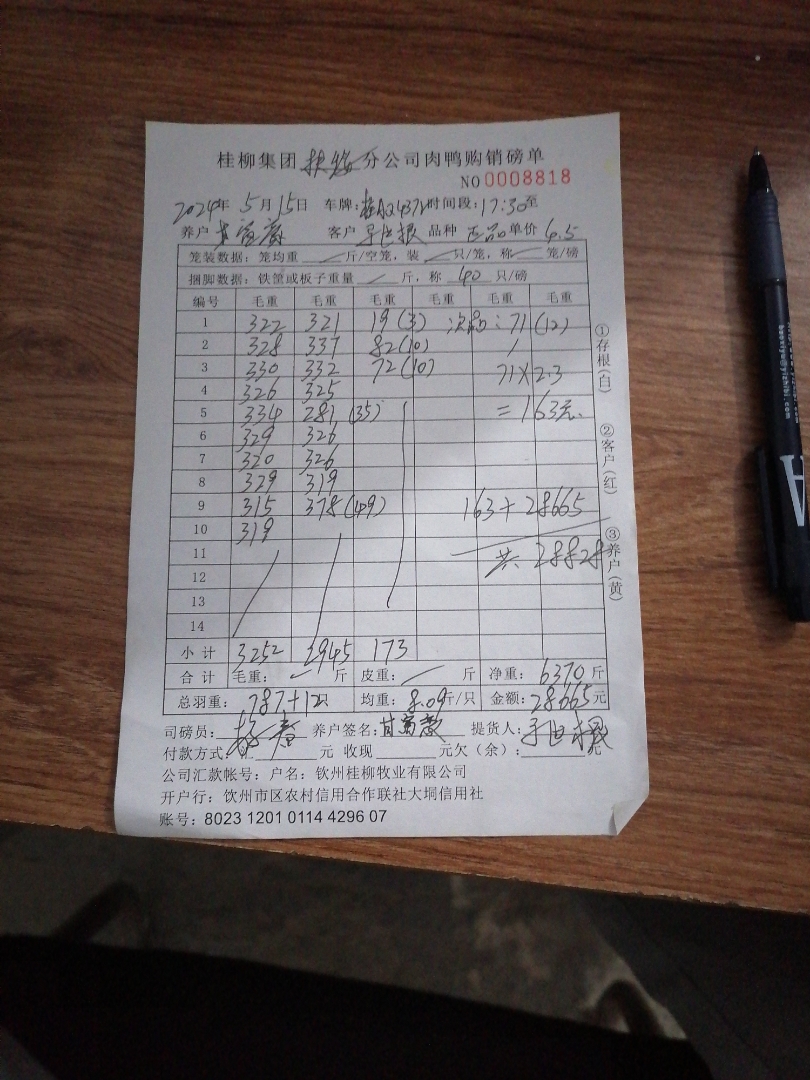 桂柳集团扶绥分公司肉鸭购销磅单
NO 0008818
2024年 5月15日 车牌: 时间段:17:30至
养户 甘富 客户 品种 正品 单价 4.5
笼装数据:笼均重 斤/空笼,装 只/笼,称 笼/磅
捆脚数据:铁筐或板子重量 斤,称 40 只/磅
编号 毛重 毛重 毛重 毛重 毛重 毛重
1 322 321 19(3) 次品:71(12)
2 328 337 82(10)
3 330 332 72(10) 71×2.3
4 326 325
5 334 281(35) =163元
6 329 326
7 320 326
8 329 319
9 315 378(49) 163+28665
10 319
11 共 28828
12
13
14
小计 3252 2945 173
合计 毛重: 斤 皮重: 斤 净重: 6370斤
总羽重: 787+12只 均重: 8.09斤/只 金额: 28665元
司磅员: 养户签名:甘富 提货人:
付款方式: 元 收现 元欠(余): 元
公司汇款帐号:户名:钦州桂柳牧业有限公司
开户行:钦州市区农村信用合作联社大垌信用社
账号:8023 1201 0114 4296 07
①存根(白)
②客户(红)
③养户(黄)